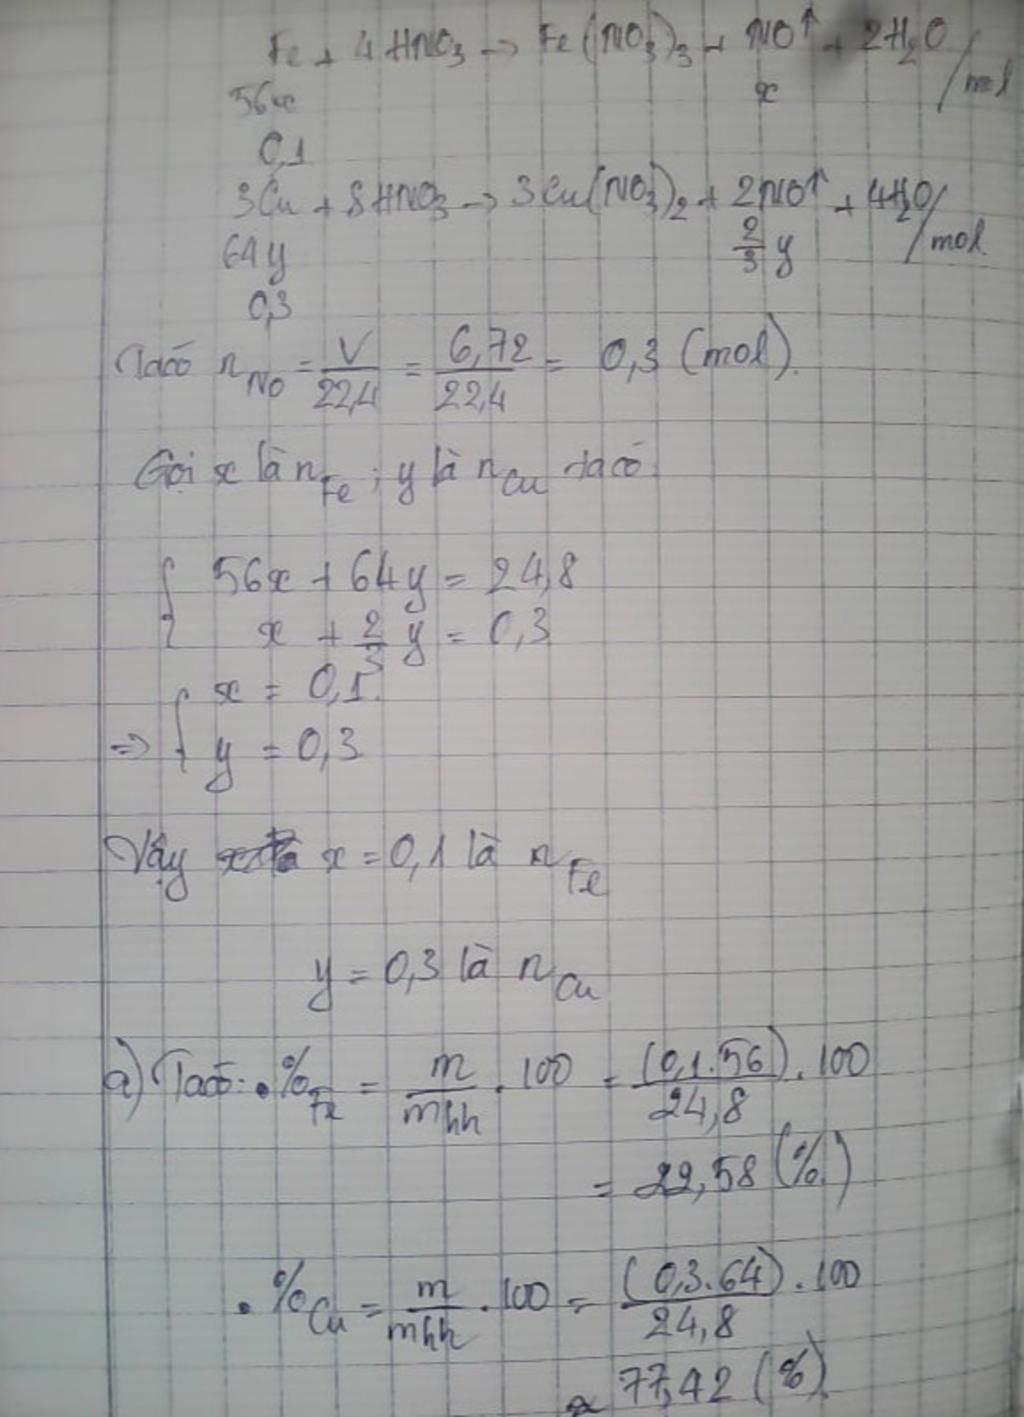 Fe + 4HNO₃ → Fe(NO₃)₃ + NO↑ + 2H₂O /mol
56x x
0,1
3Cu + 8HNO₃ → 3Cu(NO₃)₂ + 2NO↑ + 4H₂O /mol
64y 2/3 y
0,3
Ta có n_NO = V/22,4 = 6,72/22,4 = 0,3 (mol).
Gọi x là n_Fe ; y là n_Cu ta có
{ 56x + 64y = 24,8
x + 2/3 y = 0,3
⇒ { x = 0,1.
y = 0,3
Vậy x = 0,1 là n_Fe
y = 0,3 là n_Cu
a) Ta có: • %_Fe = m/mhh . 100 = (0,1.56)/24,8 . 100
= 22,58 (%)
• %_Cu = m/mhh . 100 = (0,3.64)/24,8 . 100
≈ 77,42 (%)